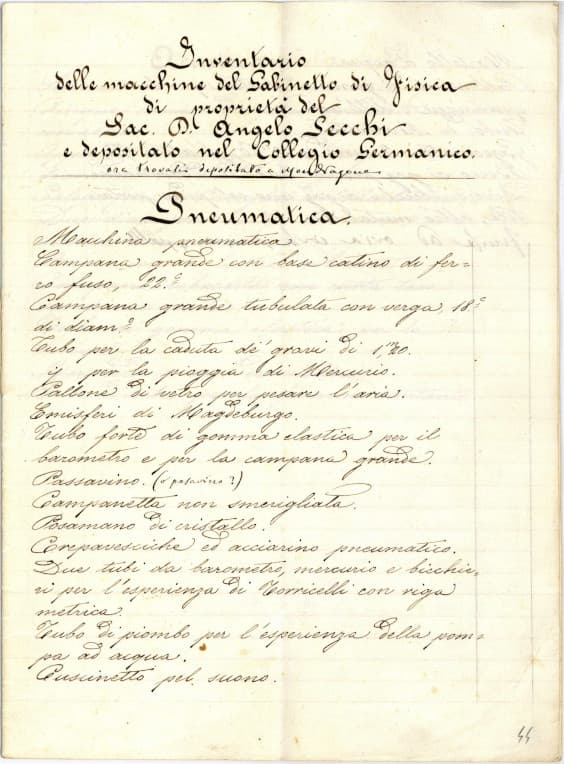 Inventario
delle macchine del Gabinetto di Fisica
di proprietà del
Sac. D. Angelo Secchi
e depositato nel Collegio Germanico.
ora trovasi depositato a Mondragone
Pneumatica.
Macchina pneumatica
Campana grande con base catino di fer-
ro fuso, 22.c
Campana grande tubulata con verga 18.c
di diam.o
Tubo per la caduta de' gravi di 1,m20.
y per la pioggia di Mercurio.
Pallone di vetro per pesare l'aria.
Emisferi di Magdeburgo.
Tubo forte di gomma elastica per il
barometro e per la campana grande.
Passavino. (o posavino?)
Campanetta non smerigliata.
Posamano di cristallo.
Crepavesciche ed acciarino pneumatico.
Due tubi da barometro, mercurio e bicchie-
ri per l'esperienza di Torricelli con riga
metrica.
Tubo di piombo per l'esperienza della pom-
pa ad acqua.
Cuscinetto pel suono.
44